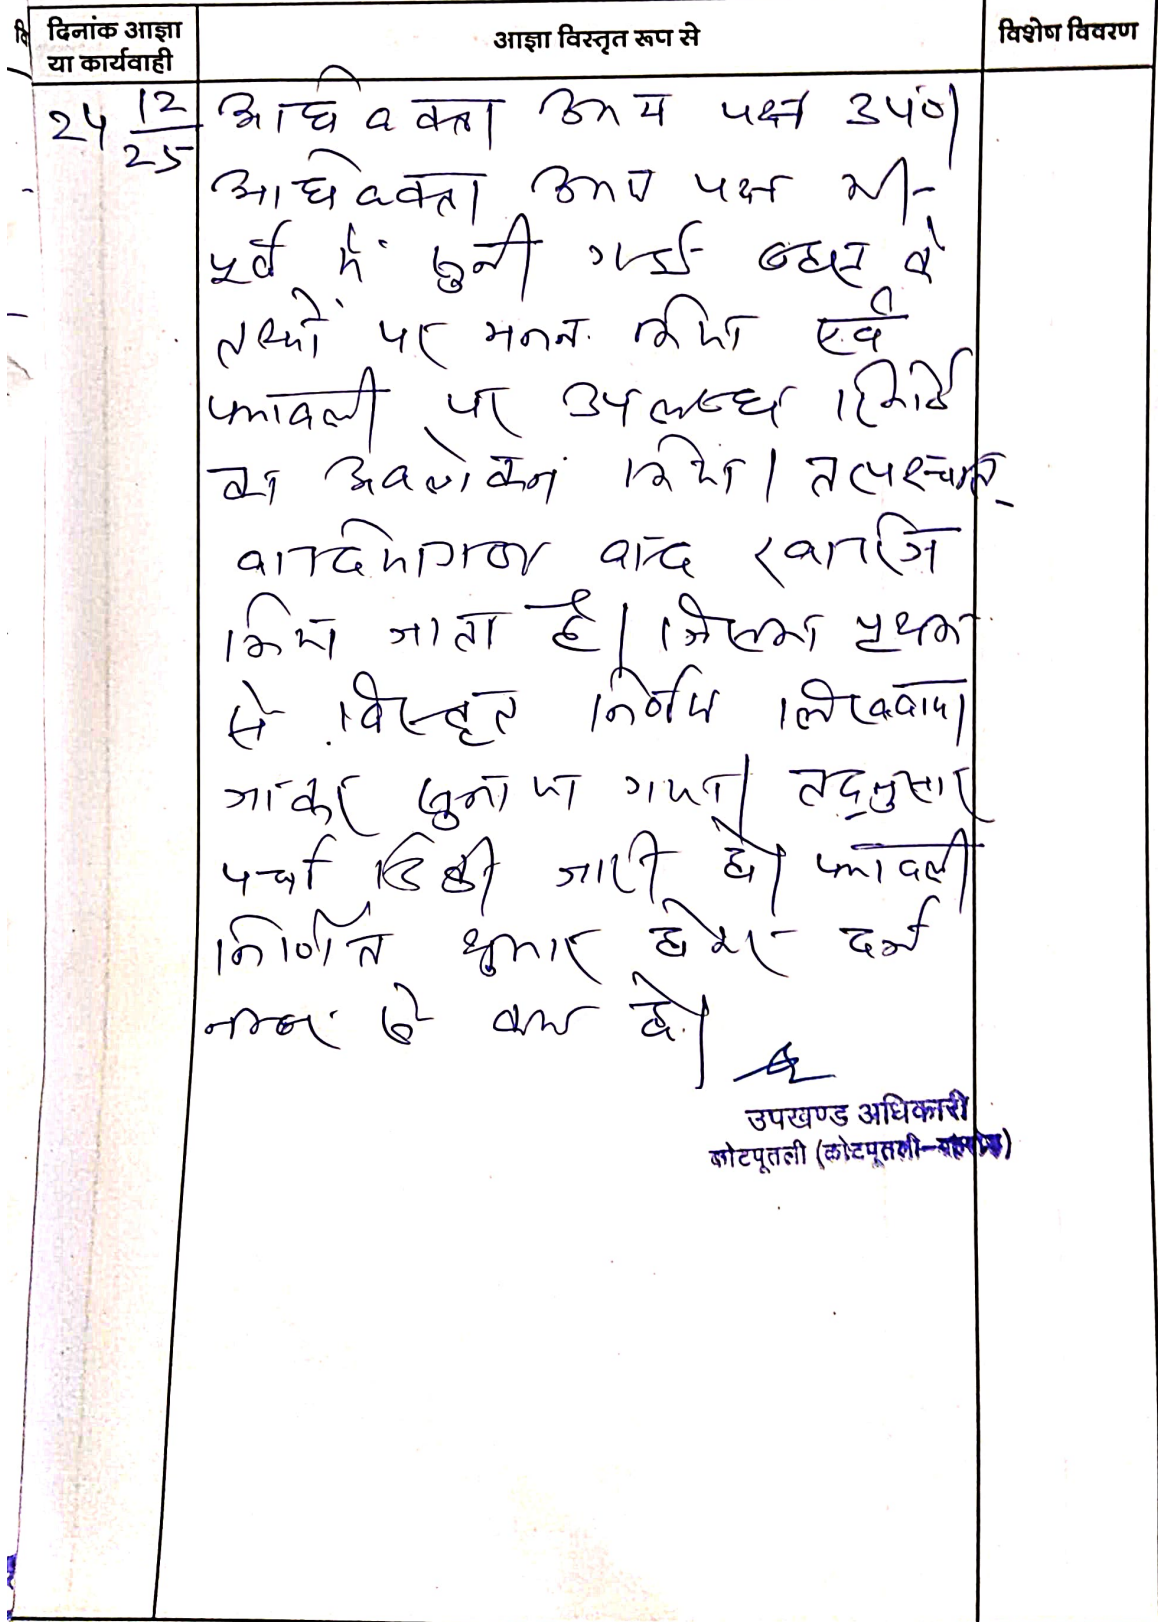 दिनांक आज्ञा
या कार्यवाही
आज्ञा विस्तृत रूप से
विशेष विवरण
24 12/25
अधिवक्ता उभय पक्ष उप०।
अधिवक्ता उभय पक्ष की
पूर्व में सुनी गई बहस के
तथ्यों पर मनन किया एवं
पत्रावली पर उपलब्ध रिकॉर्ड
का अवलोकन किया। तत्पश्चात
वादियागण वाद खारिज
किया जाता है। जिसका पृथक
से विस्तृत निर्णय लिखवाया
जाकर सुनाया गया। तद्नुसार
पर्चा डिक्री जारी हो। पत्रावली
निर्णित शुमार होकर दर्ज
नम्बर से कम हो।
उपखण्ड अधिकारी
कोटपूतली (कोटपूतली-बहरोड़)